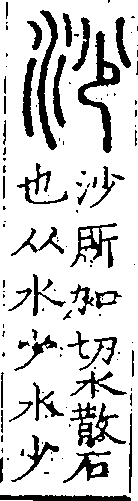 沙
沙所加切水散石
也从水少水少